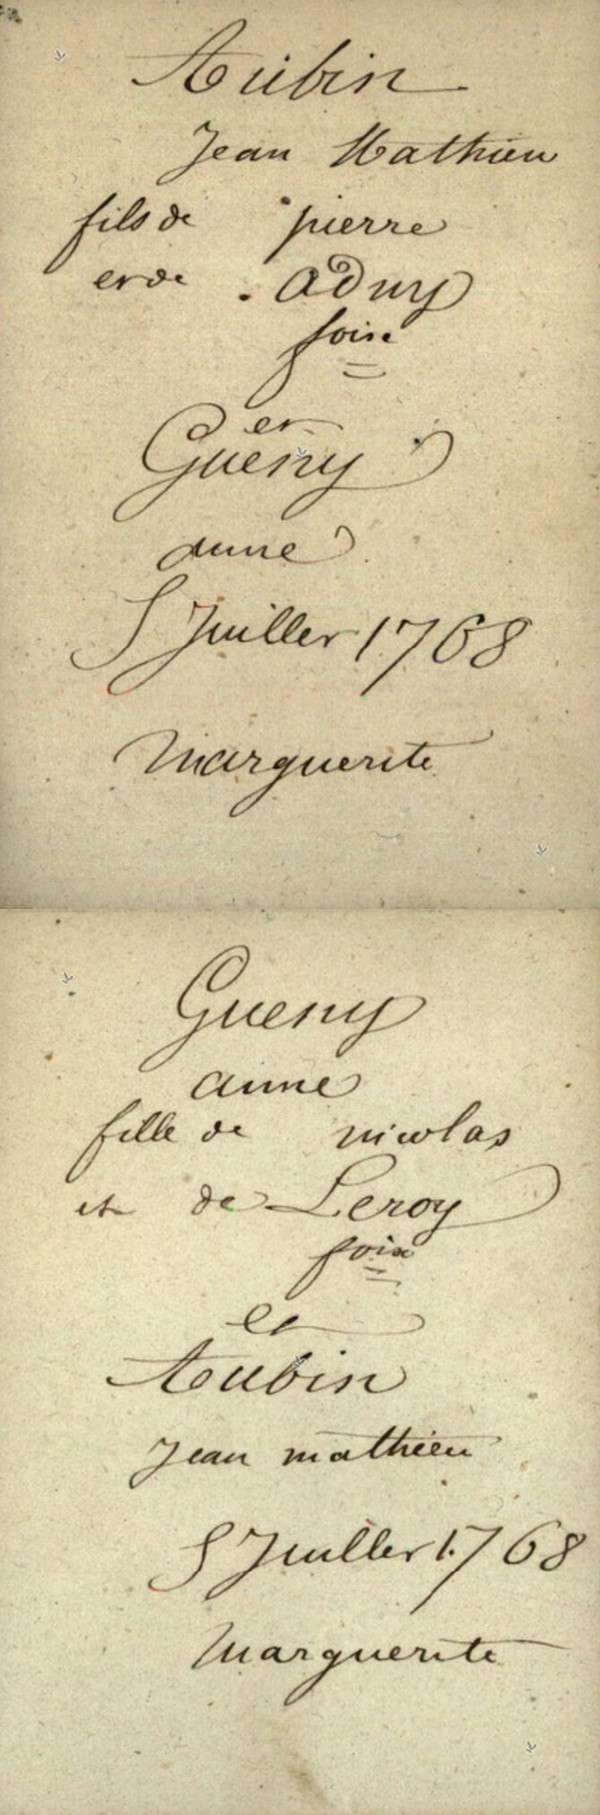 Aubin
Jean Mathieu
fils de pierre
et de aduy
foise
et
Gueny
anne
5 Juillet 1768
Marguerite
Gueny
anne
fille de nicolas
et de Leroy
foise
et
Aubin
Jean mathieu
5 Juillet 1768
Marguerite